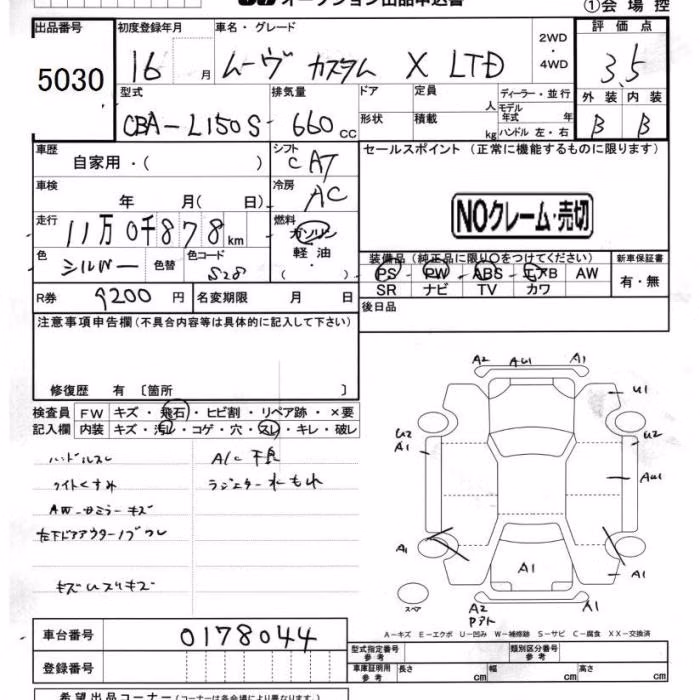 オークション出品申込書
①会場控
出品番号 初度登録年月 車名・グレード 2WD・4WD 評価点
5030 16 月 ムーヴ カスタム X LTD 3.5
型式 排気量 ドア 定員 人 ディーラー・並行 外装 内装
CBA-L150S 660 cc 形状 積載 kg モデル年式 年 ハンドル 左・右 B B
車歴 自家用・( ) シフト CAT セールスポイント (正常に機能するものに限ります)
車検 年 月( 日) 冷房 AC
NOクレーム・売切
走行 11万0千878km 燃料 ガソリン
軽油・( )
色 シルバー 色替 色コード S28
装備品(純正品に限り○をつけてください) 新車保証書
PS PW ABS エアB AW 有・無
SR ナビ TV カワ
R券 9200円 名変期限 月 日 後日品
注意事項申告欄(不具合内容等は具体的に記入して下さい)
修復歴 有〔箇所 〕
検査員 FW キズ・飛石・ヒビ割・リペア跡・×要
記入欄 内装 キズ・汚レ・コゲ・穴・スレ・キレ・破レ
ハンドルスレ A/C不良
ライトくすみ ラジエター水もれ
AW・キズ
左下ドアアウターノブ
キズ
A2 AU1 A1
U1
U2 A1
U2
AU1
A1
A1
A1
A2 A1
スペア
A-キズ E-エクボ U-凹み W-補修跡 S-サビ C-腐食 XX-交換済
車台番号 0178044
型式指定番号 参考 類別区分番号 参考
登録番号
車庫証明用 参考 長さ cm 幅 cm 高さ cm
希望出品コーナー(コーナーは各会場により異なります。)